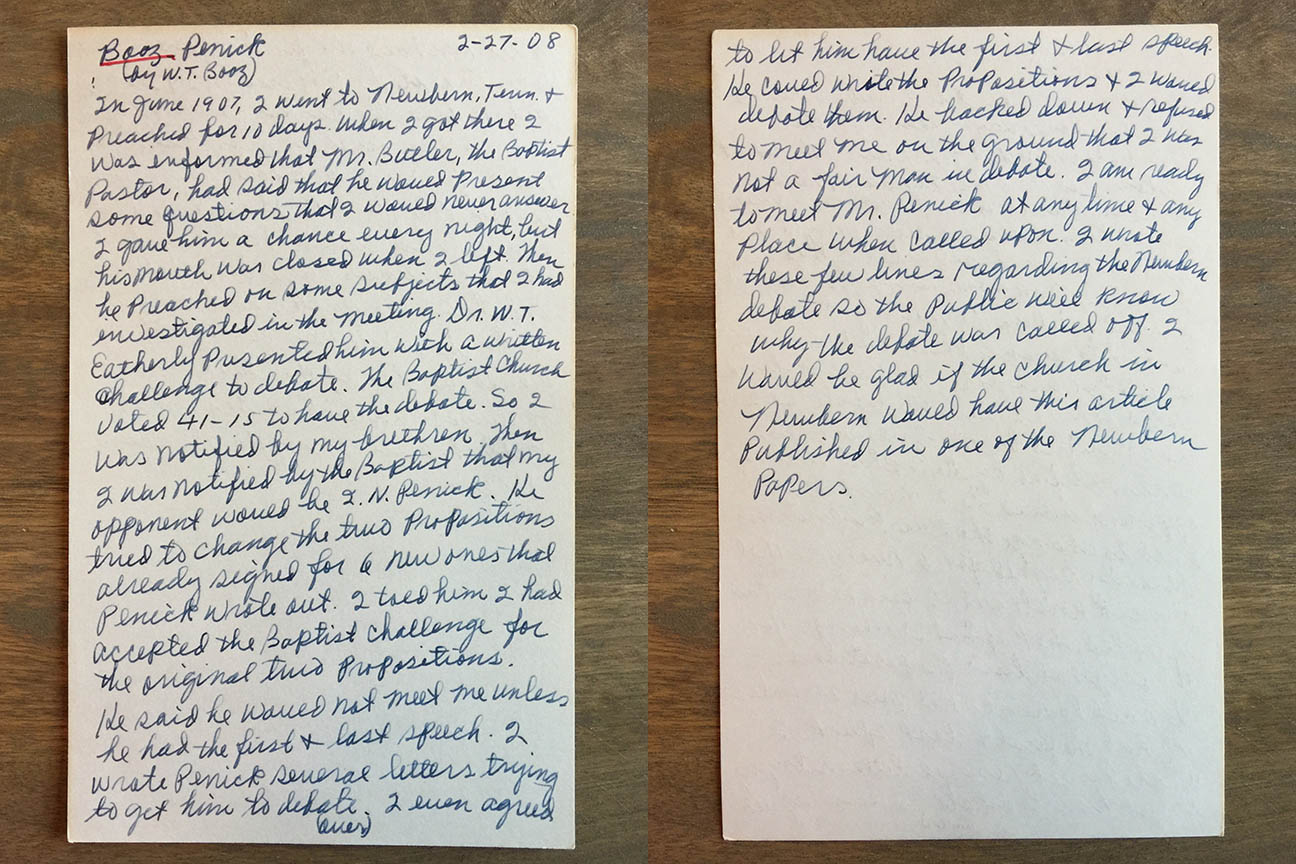 Booz-Penick 2-27-08
(by W.T. Booz)
In June 1907, I went to Newbern, Tenn. &
Preached for 10 days. When I got there I
was informed that Mr. Butler, the Baptist
Pastor, had said that he would Present
some questions that I would never answer
I gave him a chance every night, but
his mouth was closed when I left. Then
he Preached on some subjects that I had
envestigated in the meeting. Dr. W.T.
Eatherly Presented him with a written
challenge to debate. The Baptist Church
voted 41-15 to have the debate. So I
was notified by my brethren. Then
I was notified by the Baptist that my
opponent would be I.N. Penick. He
tried to change the two Propositions
already signed for 6 new ones that
Penick wrote out. I told him I had
accepted the Baptist challenge for
the original two Propositions.
He said he would not meet me unless
he had the first & last speech. I
wrote Penick several letters trying
to get him to debate. I even agreed
(over)
to let him have the first & last speech.
He could wrote the Propositions & I would
debate them. He backed down & refused
to meet me on the ground that I was
not a fair man in debate. I am ready
to meet Mr. Penick at any time & any
Place when called upon. I wrote
these few lines regarding the Newbern
debate so the Public will know
why the debate was called off. I
would be glad if the church in
Newbern would have this article
Published in one of the Newbern
Papers.